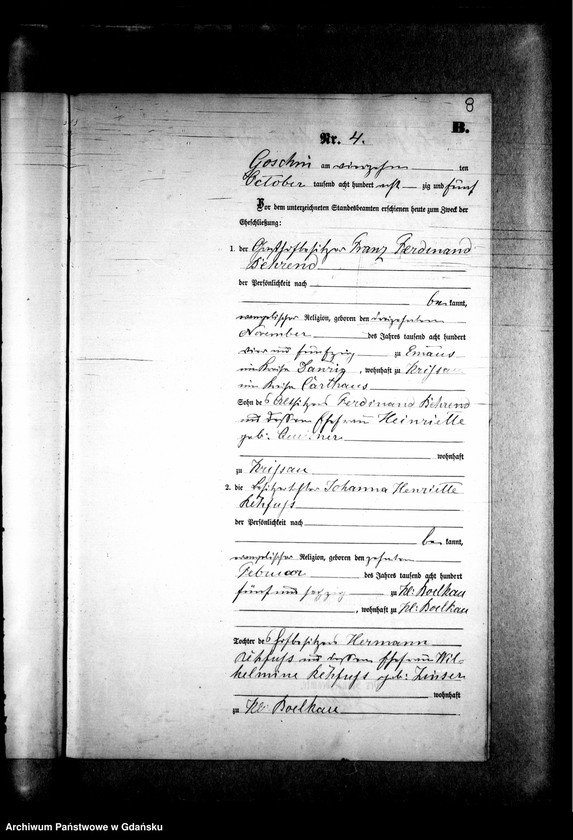 8
B.
Nr. 4.
Goschin am vierzehn ten
October tausend acht hundert acht zig und fünf
Vor dem unterzeichneten Standesbeamten erschienen heute zum Zweck der
Eheschließung:
1. der Franz Ferdinand
Behrend
der Persönlichkeit nach
be kannt,
evangelischer Religion, geboren den dreizehnten
November des Jahres tausend acht hundert
vier und fünfzig zu Emaus
im Kreise Danzig, wohnhaft zu Krissau
im Kreise Carthaus
Sohn des Ferdinand Behrend
und dessen Ehefrau Heinriette
geb:
wohnhaft
zu Krissau
2. die Besitzertochter Johanna Henriette
Rehfuss
der Persönlichkeit nach
be kannt,
evangelischer Religion, geboren den zehnten
Februar des Jahres tausend acht hundert
fünf und sechzig zu Kl: Boelkau
, wohnhaft zu Kl: Boelkau
Tochter des Hofbesitzers Hermann
Rehfuss und dessen Ehefrau Wil-
helmine Rehfuss geb: Zinser
wohnhaft
zu Kl: Boelkau
Archiwum Państwowe w Gdańsku